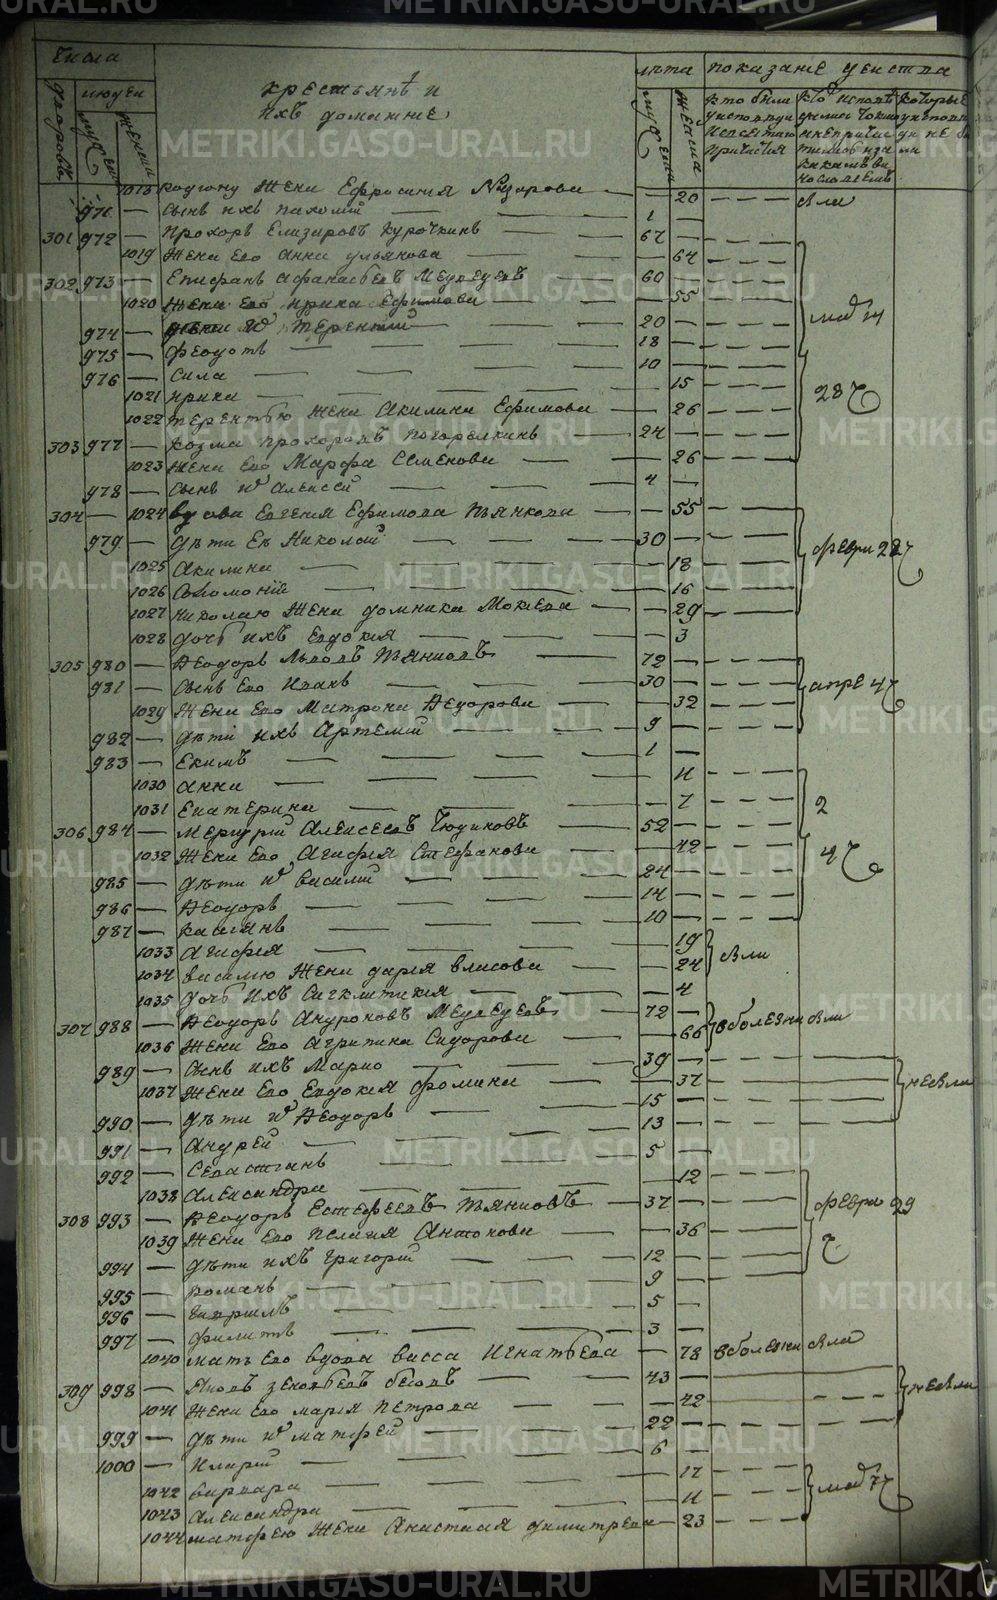 METRIKI.GASO-URAL.RU
числа
дворовъ людей
муж женска
крестьянѣ и
ихъ домашние
лѣта
мужеска женска
показание действа
кто были у исповеди и свѣтаго причастия
кто исповѣдались токмо а не причастились и за какимъ виносло­виемъ
которые у исповеди не были
1018 Родиону жена Ефросиния Назарова — 20 — были
971 — сынъ ихъ Пахомий — 1 —
301 972 — Прохоръ Елизаровъ Курочкинъ — 67 —
1019 жена его Анна Ульянова — 64
302 973 — Епифанъ Афанасьевъ Медведевъ — 60
1020 жена его Ирина Ефимова — 55
974 — дети их Терентий — 20 — май 14
975 — Федотъ — 18 —
976 — Сила — 10 —
1021 Ирина — 15 — 28
1022 Терентью жена Акилина Ефимова — 26
303 977 — Козма Прохоровъ Погорелкинъ — 24 —
1023 жена его Марфа Семенова — 26
978 — сынъ их Алексей — 4 —
304 — 1024 вдова Евгения Ефимова Пьянкова — 55
979 — дѣти ея Николай — 30 — февра 22
1025 Акилина — 18
1026 Соломоній — 16
1027 Николаю жена Домника Мокеева — 29
1028 дочь ихъ Евдокия — 3
305 980 — Ѳеодоръ Львовъ Пьянковъ — 72 —
981 — сынъ его Иванъ — 30 — апре 4
1029 жена его Матрона Ѳедорова — 32
982 — дѣти ихъ Артемий — 9 —
983 — Екимъ — 1 —
1030 Анна — 11
1031 Екатерина — 7 — 2
306 984 — Меркурий Алексеевъ Чюдиновъ — 52 —
1032 жена его Агафия Стефанова — 42 — 4
985 — дѣти их Василий — 24 —
986 — Ѳеодоръ — 14 —
987 — Касиянъ — 10 —
1033 Агафия — 19 — были
1034 Василию жена Дария Власова — 24
1035 дочь ихъ Сигклитикия — 4
307 988 — Ѳеодоръ Андроновъ Медведевъ — 72 — в болезни были
1036 жена его Агрипина Сидорова — 66
989 — сынъ ихъ Марко — 39
1037 жена его Евдокия Фомина — 37 — не были
990 — дѣти их Ѳеодоръ — 15 —
991 — Андрей — 13 —
992 — Севастиянъ — 5 —
1038 Александра — 12
308 993 — Ѳеодоръ Естефеевъ Пьянковъ — 37 — февра 29
1039 жена его Пелагия Антонова — 36
994 — дѣти ихъ Григорий — 12 —
995 — Романъ — 9 —
996 — Гавриилъ — 5 —
997 — Филипъ — 3 —
1040 мать его вдова Васса Игнатьева — 78 в болезни были
309 998 — Яковъ Зеновьевъ — 43 —
1041 жена его Мария Петрова — 42 — не были
999 — дѣти их Матфей — 22 —
1000 — Иларий — 6 —
1042 Варвара — 17
1043 Александра — 11 — май 7
1044 Матфею жена Анастасия Димитрева — 23